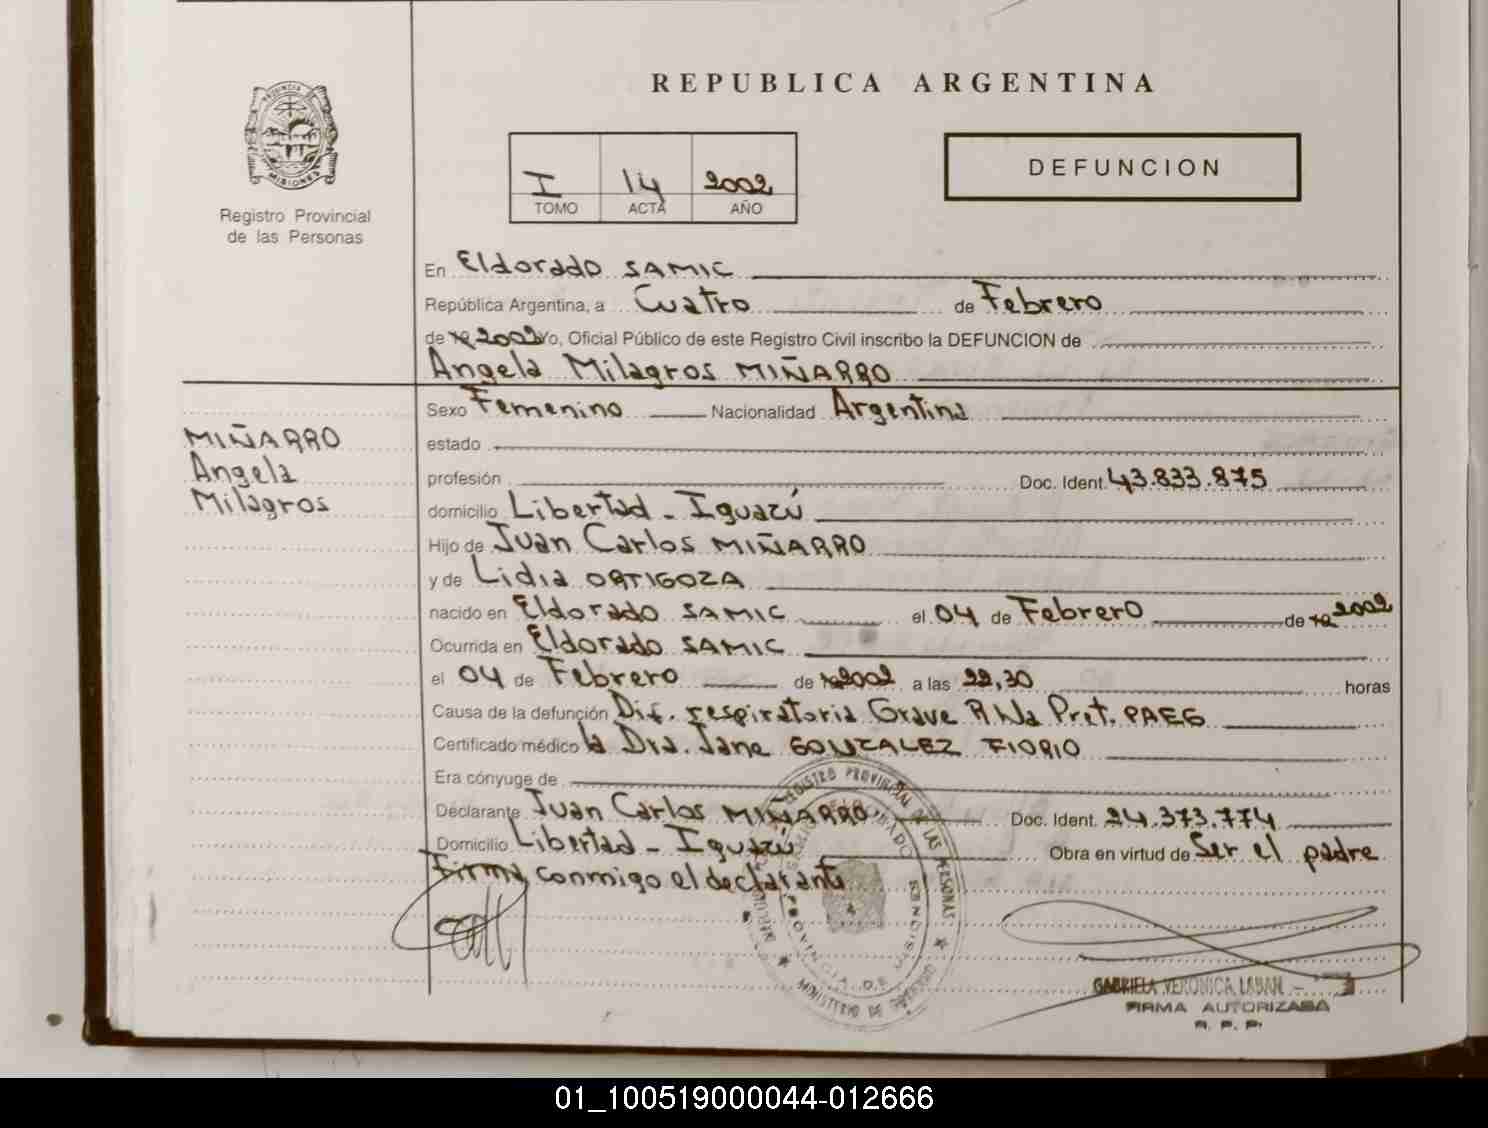 REPUBLICA ARGENTINA
PROVINCIA DE
MISIONES
Registro Provincial
de las Personas
I 14 2002
TOMO ACTA AÑO
DEFUNCION
En Eldorado SAMIC
República Argentina, a Cuatro de Febrero
de 19 2002 Yo, Oficial Público de este Registro Civil inscribo la DEFUNCION de
Angela Milagros MIÑARRO
MIÑARRO
Angela
Milagros
Sexo Femenino Nacionalidad Argentina
estado
profesión Doc. Ident. 43.833.875
domicilio Libertad - Iguazú
Hijo de Juan Carlos MIÑARRO
y de Lidia ORTIGOZA
nacido en Eldorado SAMIC el 04 de Febrero de 19 2002
Ocurrida en Eldorado SAMIC
el 04 de Febrero de 19 2002 a las 22,30 horas
Causa de la defunción Dif. respiratoria Grave R.N. Pret. PAEG
Certificado médico la Dra. Jane GONZALEZ FIORIO
Era cónyuge de
Declarante Juan Carlos MIÑARRO Doc. Ident. 24.373.774
Domicilio Libertad - Iguazú Obra en virtud de Ser el padre
Firma conmigo el declarante
REGISTRO PROVINCIAL DE LAS PERSONAS
PROVINCIA DE MISIONES
MINISTERIO DE GOBIERNO
GABRIELA VERONICA LABAN
FIRMA AUTORIZADA
R. P. P.
01_100519000044-012666